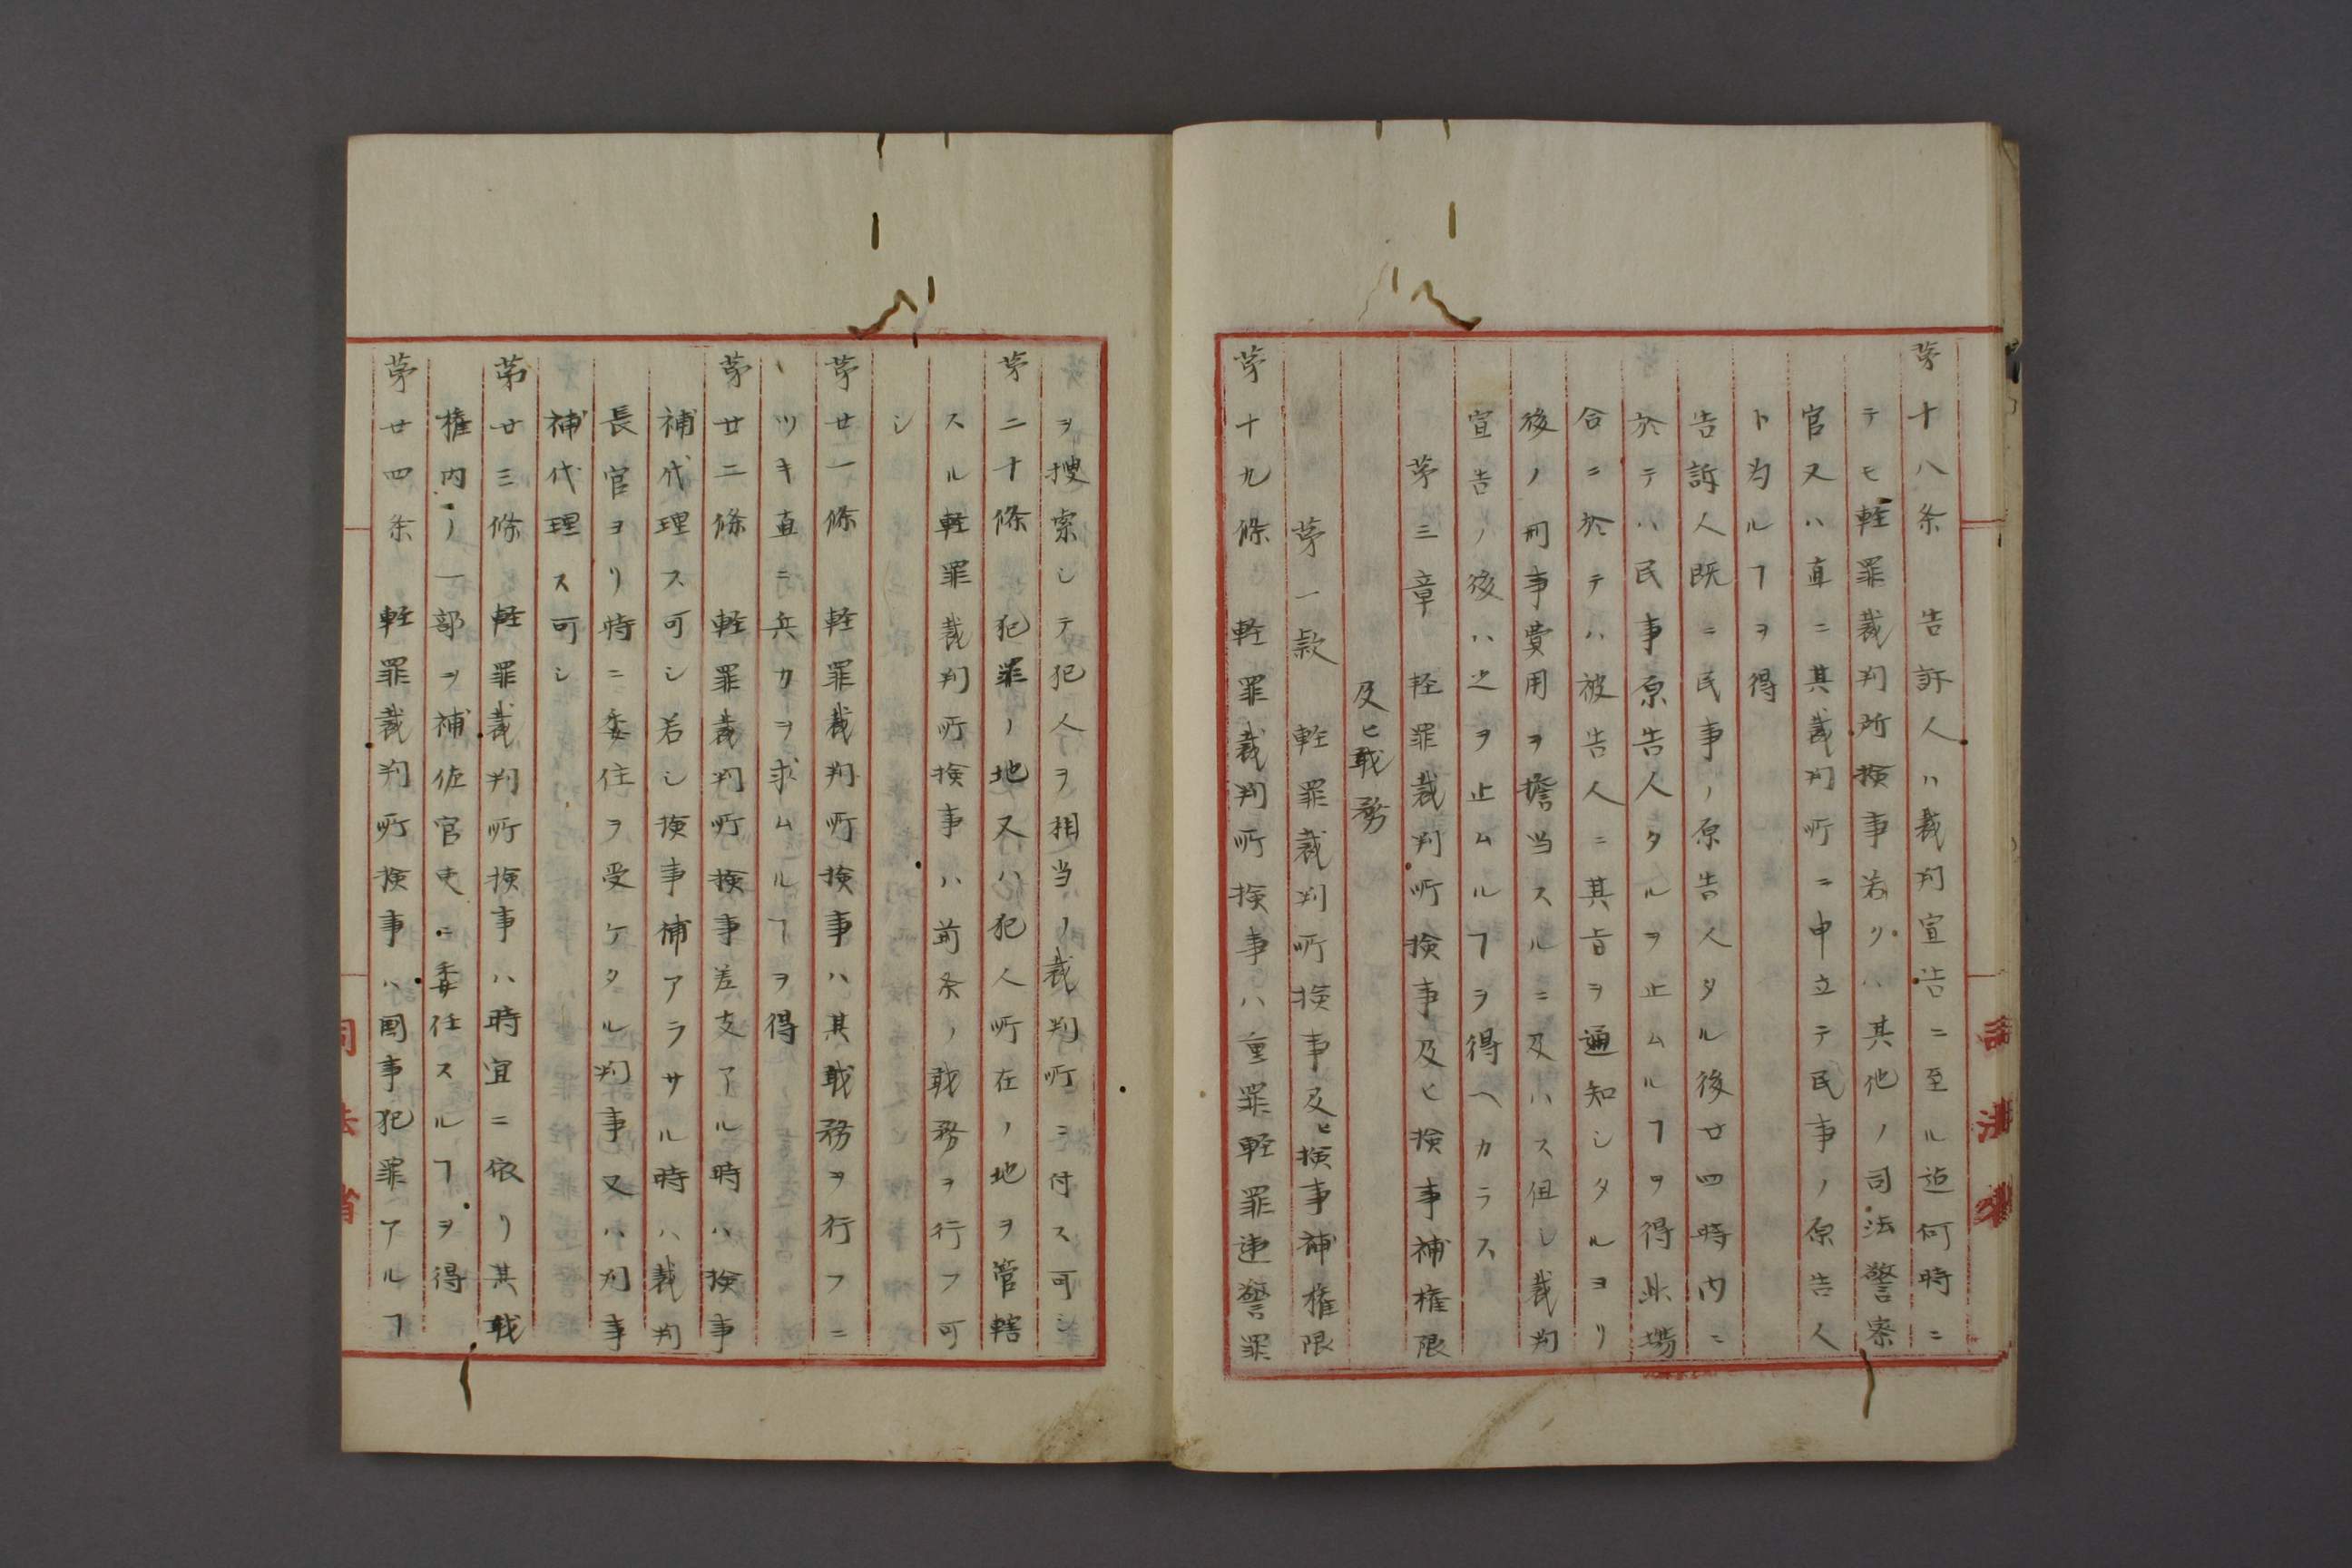 第十八条 告訴人ハ裁判宣告ニ至ル迄何時ニ
テモ軽罪裁判所検事若クハ其他ノ司法警察
官又ハ直ニ其裁判所ニ申立テ民事ノ原告人
ト為ルヿヲ得
告訴人既ニ民事ノ原告人タル後廿四時内ニ
於テハ民事原告人タルヲ止ムルヿヲ得此場
合ニ於テハ被告人ニ其旨ヲ通知シタルヨリ
後ノ刑事費用ヲ擔当スルニ及ハス但シ裁判
宣告ノ後ハ之ヲ止ムルヿヲ得ヘカラス
第三章 軽罪裁判所検事及ヒ検事補権限
及ヒ職務
第一款 軽罪裁判所検事及ヒ検事補権限
第十九條 軽罪裁判所検事ハ重罪軽罪違警罪
ヲ捜索シテ犯人ヲ相当ノ裁判所ニ付ス可シ
第二十條 犯罪ノ地又ハ犯人所在ノ地ヲ管轄
スル軽罪裁判所検事ハ前条ノ職務ヲ行フ可
シ
第廿一條 軽罪裁判所検事ハ其職務ヲ行フニ
ツキ直ニ兵力ヲ求ムルヿヲ得
第廿二條 軽罪裁判所検事差支アル時ハ検事
補代理ス可シ若シ検事補アラサル時ハ裁判
長官ヨリ時ニ委任ヲ受ケタル判事又ハ判事
補代理ス可シ
第廿三條 軽罪裁判所検事ハ時宜ニ依リ其職
権内ノ一部ヲ補佐官吏ニ委任スルヿヲ得
第廿四条 軽罪裁判所検事ハ国事犯罪アルヿ
司法省